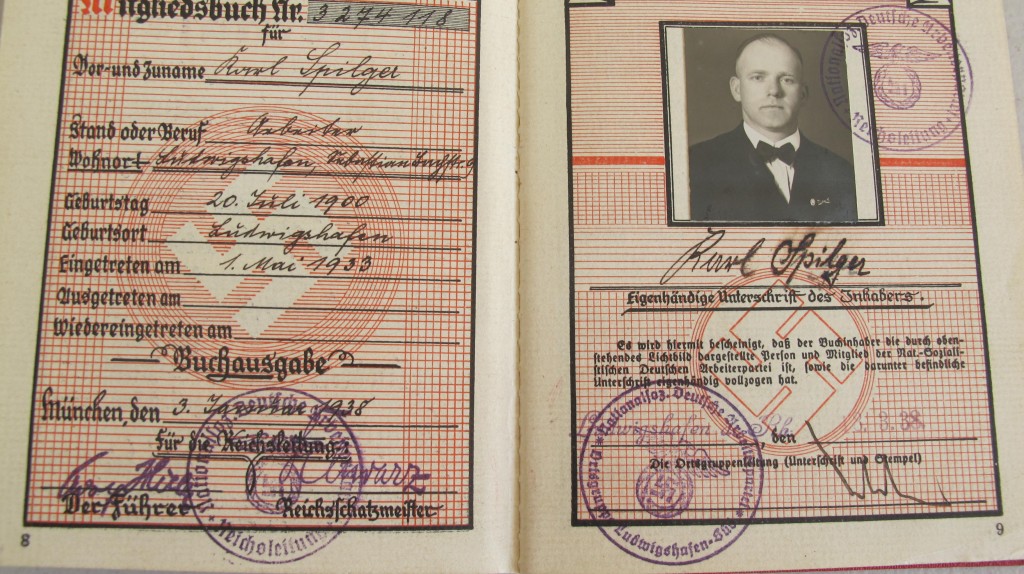 Mitgliedsbuch Nr. 3274118
für
Vor- und Zuname Karl Spilger
Stand oder Beruf Arbeiter
Wohnort Ludwigshafen, Sebastian Bachstr. 9
Geburtstag 20. Juli 1900
Geburtsort Ludwigshafen
Eingetreten am 1. Mai 1933
Ausgetreten am
Wiedereingetreten am
Buchausgabe
München, den 3. Januar 1938
Für die Reichsleitung:
Schwarz
Der Führer Reichsschatzmeister
Reichsleitung
8
Reichsleitung
Karl Spilger
Eigenhändige Unterschrift des Inhabers.
Es wird hiermit bescheinigt, daß der Buchinhaber die durch oben-
stehendes Lichtbild dargestellte Person und Mitglied der Nat.-Soziali-
stischen Deutschen Arbeiterpartei ist, sowie die darunter befindliche
Unterschrift eigenhändig vollzogen hat.
Ludwigshafen a. Rh. den 3.38
Die Ortsgruppenleitung (Unterschrift und Stempel)
Ludwigshafen-Süd
9